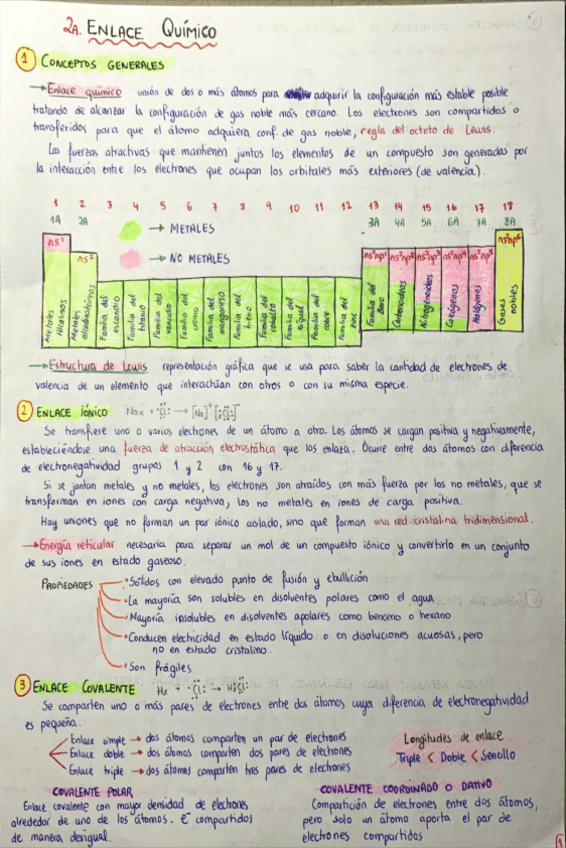 2A. ENLACE QUÍMICO
1 CONCEPTOS GENERALES
→ Enlace químico unión de dos o más átomos para adquirir la configuración más estable posible
tratando de alcanzar la configuración de gas noble más cercano. Los electrones son compartidos o
transferidos para que el átomo adquiera conf. de gas noble, regla del octeto de Lewis.
Las fuerzas atractivas que mantienen juntos los elementos de un compuesto son generadas por
la interacción entre los electrones que ocupan los orbitales más exteriores (de valencia).
1 2 3 4 5 6 7 8 9 10 11 12 13 14 15 16 17 18
1A 2A 3A 4A 5A 6A 7A 8A
→ METALES
→ NO METALES
ns¹ ns² ns²np¹ ns²np² ns²np³ ns²np⁴ ns²np⁵ ns²np⁶
Metales Alcalinos
Metales alcalinotérreos
Familia del escandio
Familia del titanio
Familia del vanadio
Familia del cromo
Familia del manganeso
Familia del hierro
Familia del cobalto
Familia del níquel
Familia del cobre
Familia del zinc
Familia del Boro
Carbonoideos
Nitrogenoideos
Calcógenos
Halógenos
Gases nobles
→ Estructura de Lewis representación gráfica que se usa para saber la cantidad de electrones de
valencia de un elemento que interactúan con otros o con su misma especie.
2 ENLACE IÓNICO Na× + ·Cl: → [Na]⁺[:Cl:]⁻
Se transfiere uno o varios electrones de un átomo a otro. Los átomos se cargan positiva y negativamente,
estableciéndose una fuerza de atracción electrostática que los enlaza. Ocurre entre dos átomos con diferencia
de electronegatividad grupos 1 y 2 con 16 y 17.
Si se juntan metales y no metales, los electrones son atraídos con más fuerza por los no metales, que se
transforman en iones con carga negativa, los no metales en iones de carga positiva.
Hay uniones que no forman un par iónico aislado, sino que forman una red cristalina tridimensional.
→ Energía reticular necesaria para separar un mol de un compuesto iónico y convertirlo en un conjunto
de sus iones en estado gaseoso.
PROPIEDADES
• Sólidos con elevado punto de fusión y ebullición
• La mayoría son solubles en disolventes polares como el agua
• Mayoría insolubles en disolventes apolares como benceno o hexano
• Conducen electricidad en estado líquido o en disoluciones acuosas, pero
no en estado cristalino.
• Son frágiles
3 ENLACE COVALENTE H× + ·Cl: → H×Cl:
Se comparten uno o más pares de electrones entre dos átomos cuya diferencia de electronegatividad
es pequeña.
Enlace simple → dos átomos comparten un par de electrones
Enlace doble → dos átomos comparten dos pares de electrones
Enlace triple → dos átomos comparten tres pares de electrones
Longitudes de enlace
Triple < Doble < Sencillo
COVALENTE POLAR
Enlace covalente con mayor densidad de electrones
alrededor de uno de los átomos. e⁻ compartidos
de manera desigual.
COVALENTE COORDINADO O DATIVO
Compartición de electrones entre dos átomos,
pero solo un átomo aporta el par de
electrones compartidos
1